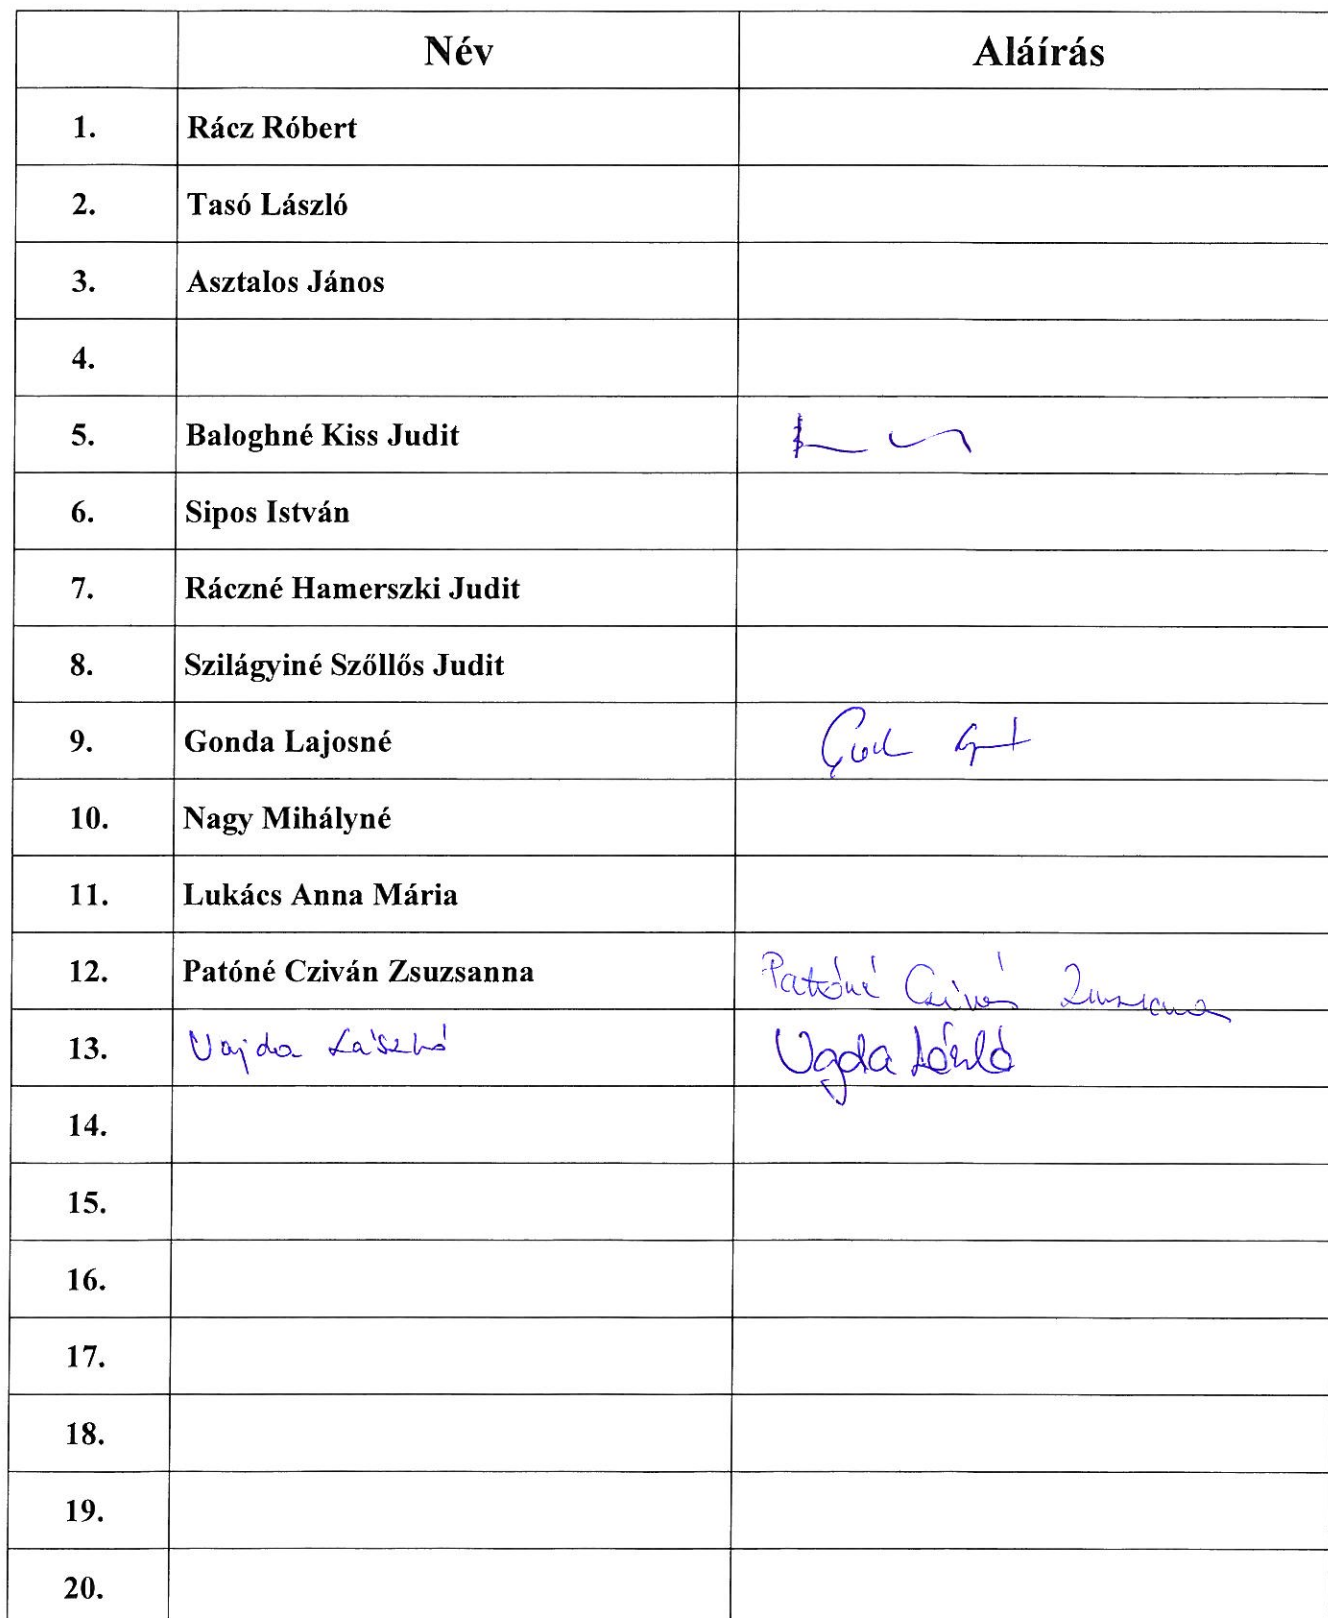 Név Aláírás
1. Rácz Róbert
2. Tasó László
3. Asztalos János
4.
5. Baloghné Kiss Judit
6. Sipos István
7. Ráczné Hamerszki Judit
8. Szilágyiné Szőllős Judit
9. Gonda Lajosné
10. Nagy Mihályné
11. Lukács Anna Mária
12. Patóné Cziván Zsuzsanna Patóné Cziván Zsuzsanna
13. Vajda László Vajda László
14.
15.
16.
17.
18.
19.
20.